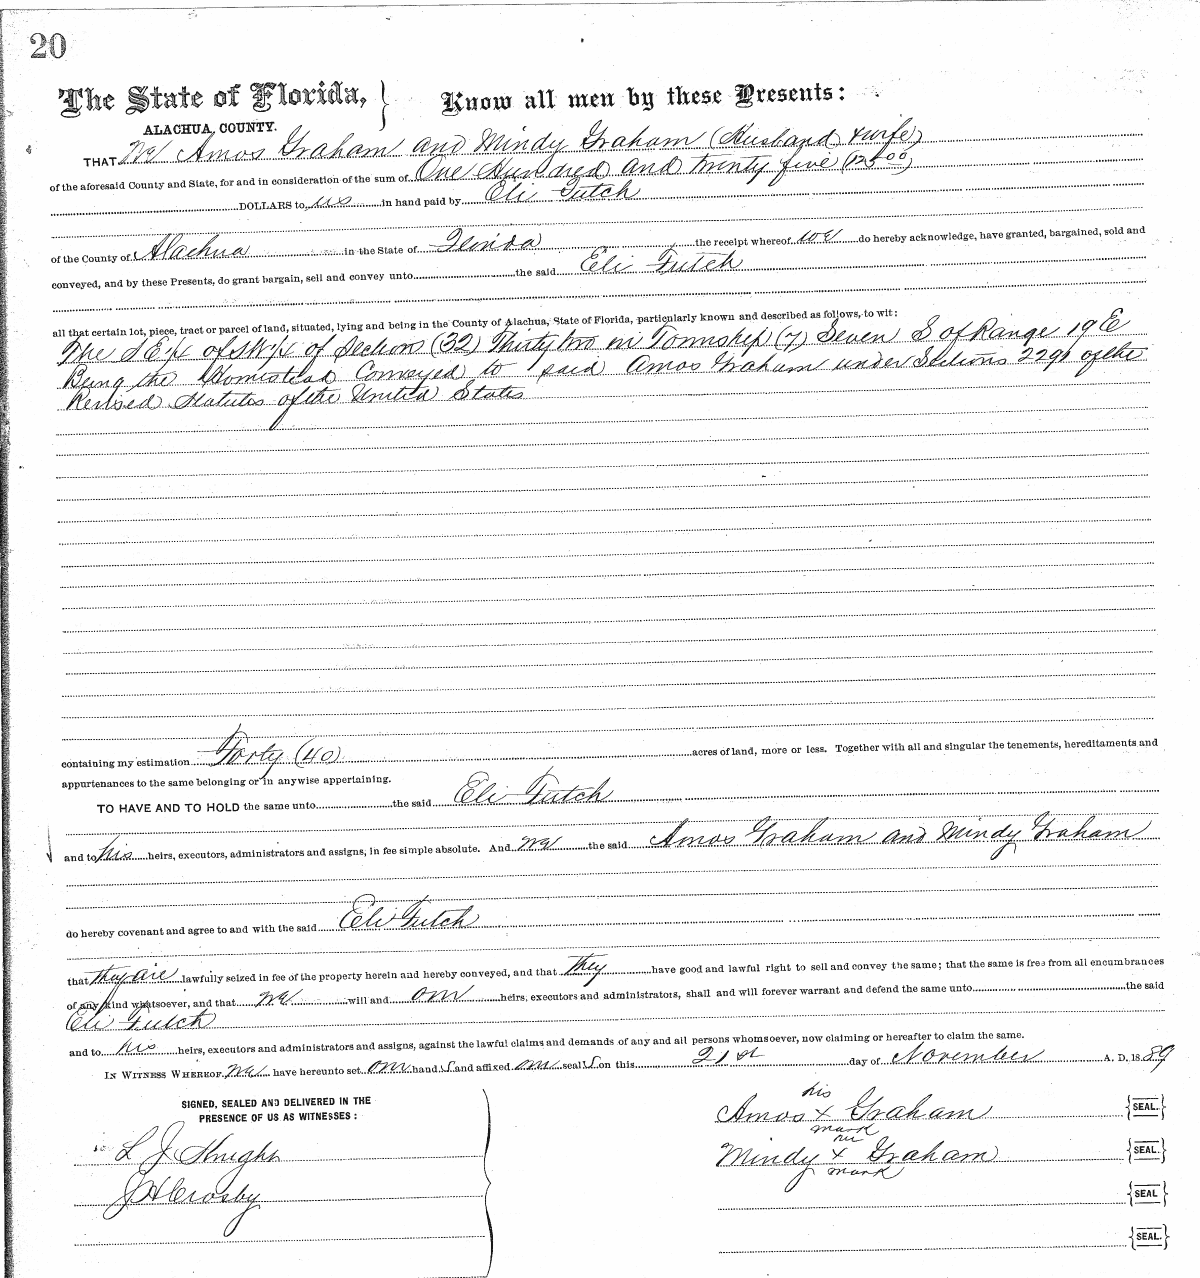 20
The State of Florida, } Know all men by these Presents:
ALACHUA COUNTY.
THAT We Amos Graham and Mindy Graham (Husband & wife)
of the aforesaid County and State, for and in consideration of the sum of One Hundred and twenty five (125 00)
DOLLARS to us in hand paid by Eli Futch
of the County of Alachua in the State of Florida the receipt whereof we do hereby acknowledge, have granted, bargained, sold and
conveyed, and by these Presents, do grant bargain, sell and convey unto the said Eli Futch
all that certain lot, piece, tract or parcel of land, situated, lying and being in the County of Alachua, State of Florida, particularly known and described as follows, to wit:
The S E ¼ of S W ¼ of Section (32) Thirty two in Township (7) Seven S of Range 19 E
Being the Homestead Conveyed to said Amos Graham under Sections 2291 of the
Revised Statutes of the United States
containing my estimation Forty (40) acres of land, more or less. Together with all and singular the tenements, hereditaments and
appurtenances to the same belonging or in anywise appertaining.
TO HAVE AND TO HOLD the same unto the said Eli Futch
and to his heirs, executors, administrators and assigns, in fee simple absolute. And we the said Amos Graham and Mindy Graham
do hereby covenant and agree to and with the said Eli Futch
that they are lawfully seized in fee of the property herein and hereby conveyed, and that they have good and lawful right to sell and convey the same; that the same is free from all encumbrances
of any kind whatsoever, and that we will and our heirs, executors and administrators, shall and will forever warrant and defend the same unto the said
Eli Futch
and to his heirs, executors and administrators and assigns, against the lawful claims and demands of any and all persons whomsoever, now claiming or hereafter to claim the same.
IN WITNESS WHEREOF, we have hereunto set our hand S and affixed our seal S on this 21st day of November A. D. 18 89
SIGNED, SEALED AND DELIVERED IN THE
PRESENCE OF US AS WITNESSES:
his
Amos x Graham {SEAL.}
mark
her
Mindy x Graham {SEAL.}
mark
L J Knight
J H Crosby
{SEAL}
{SEAL.}